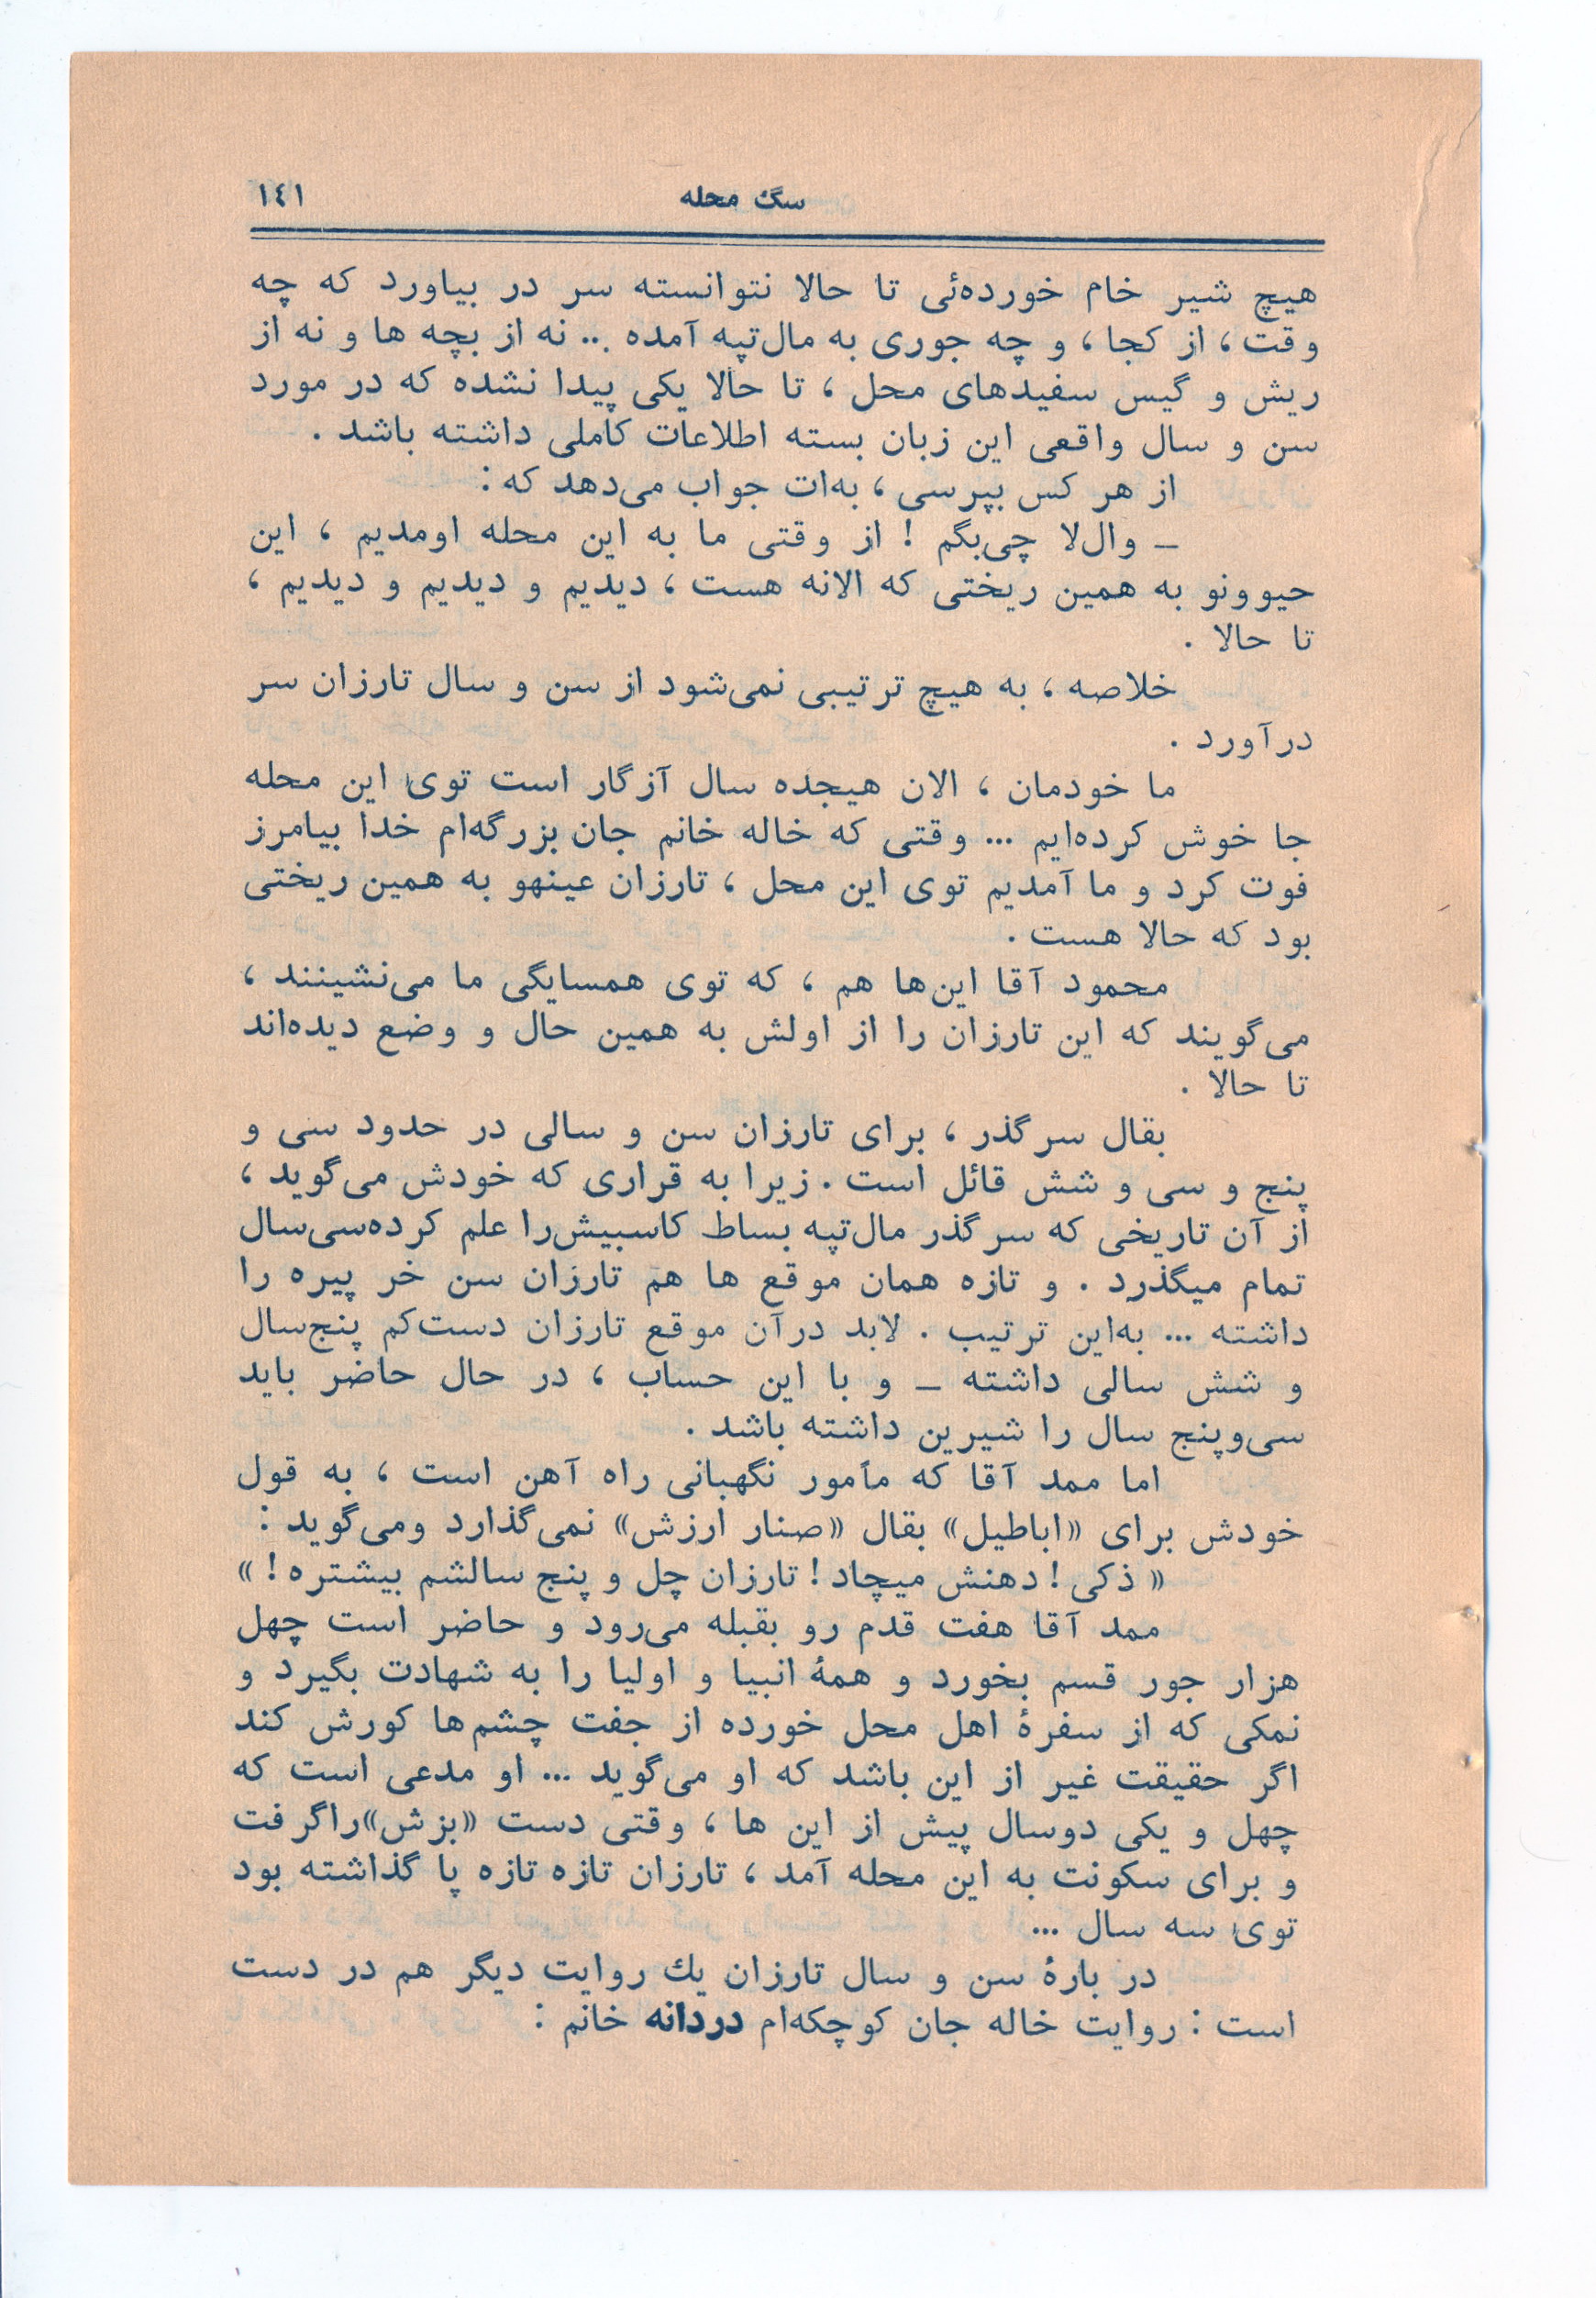 سگ محله
١٤١
هیچ شیر خام خورده‌ئی تا حالا نتوانسته سر در بیاورد که چه
وقت، از کجا، و چه جوری به مال‌تپه آمده ... نه از بچه ها و نه از
ریش و گیس سفیدهای محل، تا حالا یکی پیدا نشده که در مورد
سن و سال واقعی این زبان بسته اطلاعات کاملی داشته باشد.
از هر کس بپرسی، به‌ات جواب می‌دهد که:
ـ وال‌لا چی‌بگم! از وقتی ما به این محله اومدیم، این
حیوونو به همین ریختی که الانه هست، دیدیم و دیدیم و دیدیم،
تا حالا.
خلاصه، به هیچ ترتیبی نمی‌شود از سن و سال تارزان سر
درآورد.
ما خودمان، الان هیجده سال آزگار است توی این محله
جا خوش کرده‌ایم ... وقتی که خاله خانم جان بزرگه‌ام خدا بیامرز
فوت کرد و ما آمدیم توی این محل، تارزان عینهو به همین ریختی
بود که حالا هست.
محمود آقا این‌ها هم، که توی همسایگی ما می‌نشینند،
می‌گویند که این تارزان را از اولش به همین حال و وضع دیده‌اند
تا حالا.
بقال سر گذر، برای تارزان سن و سالی در حدود سی و
پنج و سی و شش قائل است. زیرا به قراری که خودش می‌گوید،
از آن تاریخی که سر گذر مال‌تپه بساط کاسبیش‌را علم کرده‌سی‌سال
تمام میگذرد. و تازه همان موقع ها هم تارزان سن خر پیره را
داشته ... به‌این ترتیب. لابد درآن موقع تارزان دست‌کم پنج‌سال
و شش سالی داشته ـ و با این حساب، در حال حاضر باید
سی‌وپنج سال را شیرین داشته باشد.
اما ممد آقا که مأمور نگهبانی راه آهن است، به قول
خودش برای «اباطیل» بقال «صنار ارزش» نمی‌گذارد ومی‌گوید:
« ذکی! دهنش میچاد! تارزان چل و پنج سالشم بیشتره! »
ممد آقا هفت قدم رو بقبله می‌رود و حاضر است چهل
هزار جور قسم بخورد و همۀ انبیا و اولیا را به شهادت بگیرد و
نمکی که از سفرۀ اهل محل خورده از جفت چشم‌ها کورش کند
اگر حقیقت غیر از این باشد که او می‌گوید ... او مدعی است که
چهل و یکی دوسال پیش از این ها، وقتی دست «بزش»راگرفت
و برای سکونت به این محله آمد، تارزان تازه تازه پا گذاشته بود
توی سه سال ...
در بارۀ سن و سال تارزان یك روایت دیگر هم در دست
است: روایت خاله جان کوچکه‌ام دردانه خانم: